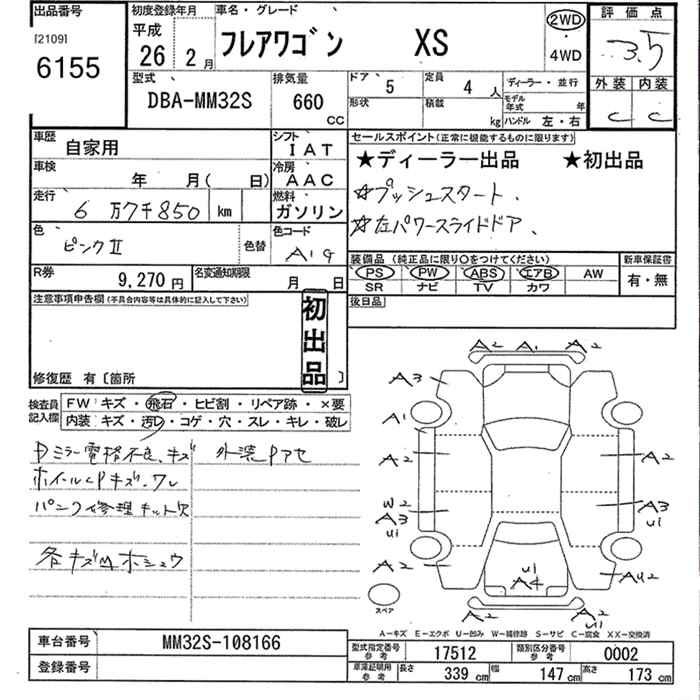 出品番号
[2109]
6155
初度登録年月
平成
26年2月
車名・グレード
フレアワゴン XS
2WD
・
4WD
評価点
3.5
外装 内装
C C
型式
DBA-MM32S
排気量
660
CC
ドア 5
定員 4人
形状
積載 kg
ディーラー・並行
モデル年式 年
ハンドル 左・右
車歴
自家用
シフト
IAT
車検
年 月( 日)
冷房
AAC
走行
6万7千850 km
燃料
ガソリン
色
ピンクII
色替
色コード
A19
R券
9,270円
名変通知期限
月 日
セールスポイント(正常に機能するものに限ります)
★ディーラー出品 ★初出品
☆プッシュスタート、
☆左パワースライドドア、
装備品(純正品に限り○をつけてください)
新車保証書
PS PW ABS エアB AW
SR ナビ TV カワ
有・無
後日品
注意事項申告欄(不具合内容等は具体的に記入して下さい)
初出品
修復歴 有〔箇所 〕
検査員記入欄
FW:キズ・飛石・ヒビ割・リペア跡・×要
内装:キズ・汚レ・コゲ・穴・スレ・キレ・破レ
Dミラー電格不良、キズ
外装Pアセ
ホイールCPキズ・ワレ
パンク修理キット欠
各キズMホシュウ
A2 A1 A2
A3
A1
A2 A2
W2
A3 A3
U1 U1
A2 U1 AU2
A4
スペア
A2 A2
U1
A-キズ E-エクボ U-凹み W-補修跡 S-サビ C-腐食 XX-交換済
車台番号
MM32S-108166
登録番号
型式指定番号
参考
17512
類別区分番号
参考
0002
車庫証明用
参考
長さ 339cm 幅 147cm 高さ 173cm